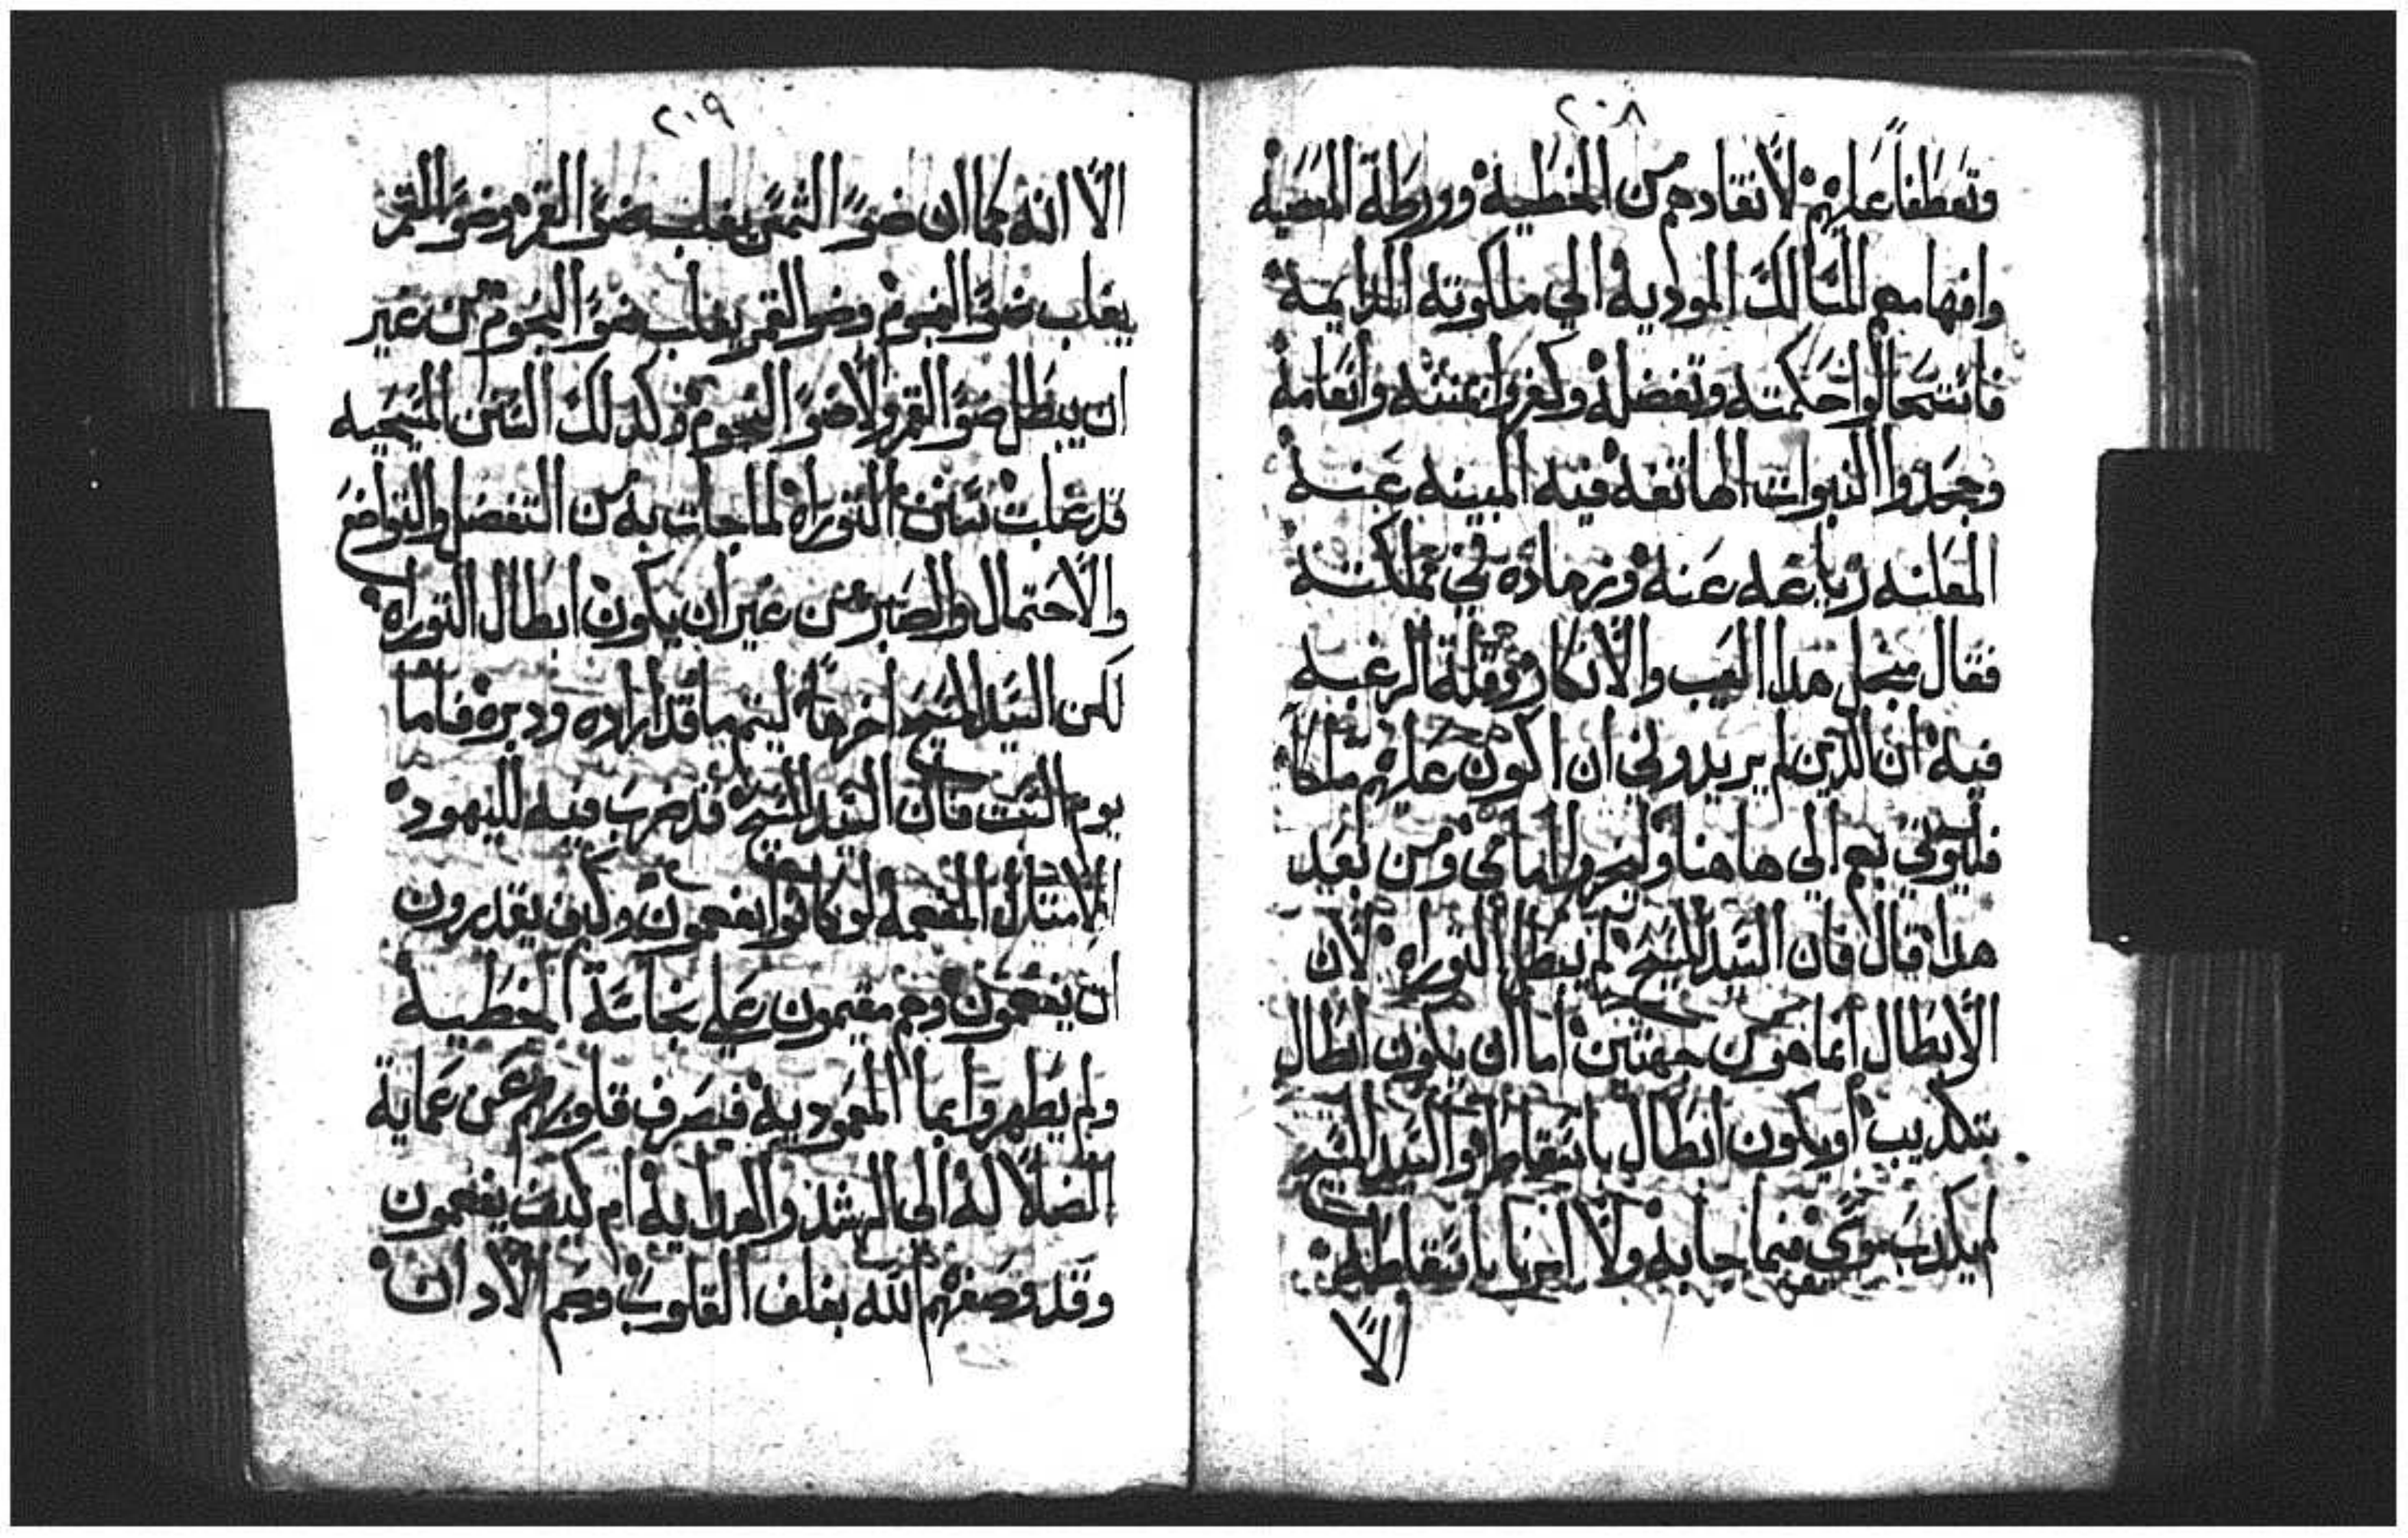 ٢٠٨
وتعطفاً عليهم لانقادهم من الخطية وورطة المعصية
المسالك الموديه الي ملكوته الدايمه
حكمته وتفضله وكفروا بمنته وانعامه
وجحدوا النبوات الهاتفه فيه المبينه عنه
المعلنه عنه في مملكته
فقال من اجل هدا العيب والانكار وقلة الرغبه
فيه ان الدين لم يريدوني ان اكون عليهم ملكاً
فليوتي بهم الي هاهنا قدامي ومن بعد
هدا قال فان السيد المسيح لم يبطل التوراه لان
الابطال انما هو من جهتين اما ان يكون ابطال
بتكديب او يكون ابطال باسقاط والسيد المسيح
لم يكدب موسي فيما جا به ولا امرنا باسقاطه
الا
٢٠٩
الا انه كما ان ضو الشمس يغلب ضو القمر وضو القمر
يغلب ضو النجوم وضو القمر يغلب ضو النجوم من غير
ان يبطل ضو القمر ولا ضو النجوم وكدلك السنن المسيحيه
قد غلبت سنن التوراه لما جات به من التفضل والتواضع
والاحتمال والصبر من غير ان يكون ابطال التوراه
لكن السيد المسيح اخرها ليتم ما قد اراده ودبره فاما
يوم السبت فان السيد المسيح قد ضرب فيه لليهود
الامتال المفهمه لو كانوا يفهمون وكيف يقدرون
ان يفهمون وهم مقيمون علي نجاسة الخطيه
ولم يطهروا بما المعموديه فيصرف قلوبهم عن عماية
الضلاله الي الرشد والهدايه ام كيف يفهمون
وقد وصفهم الله بغلف القلوب وصم الادان